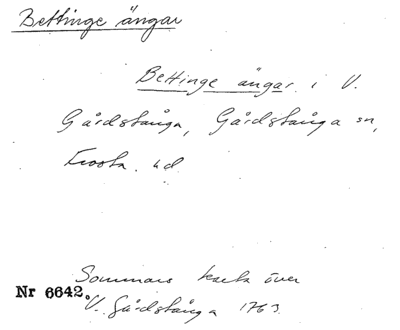 Bettinge ängar
Bettinge ängar i V.
Gårdstånga, Gårdstånga sn,
Frosta hd
Sommars karta över
Nr 6642. V. Gårdstånga 1763.